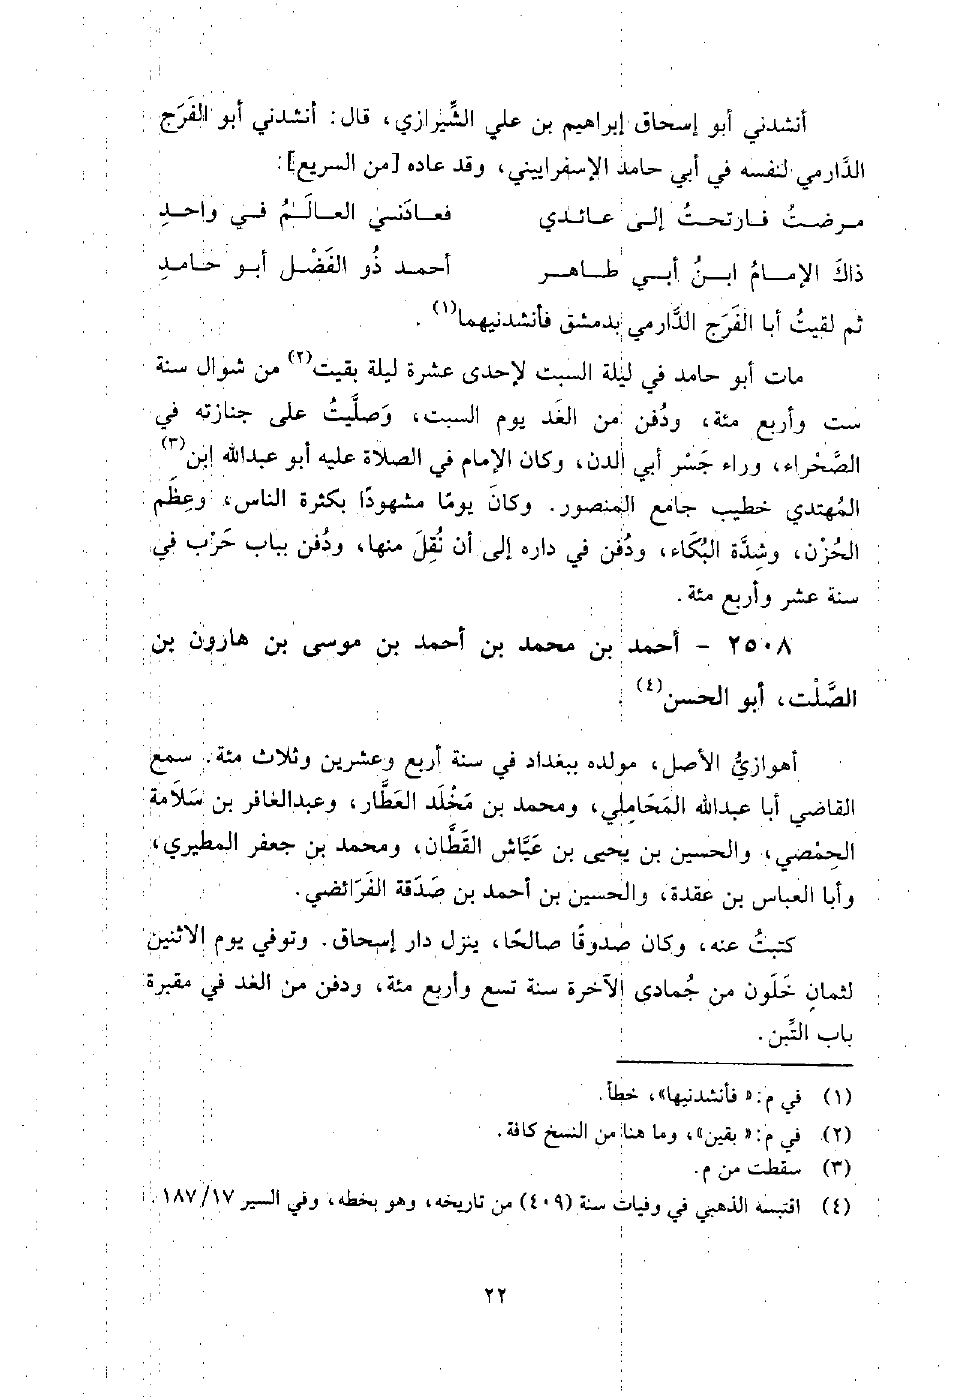 أنشدني أبو إسحاق إبراهيم بن علي الشِّيرازي، قال: أنشدني أبو الفَرَج
الدَّارمي لنفسه في أبي حامد الإسفراييني، وقد عاده [من السريع]:
مرضتُ فارتحتُ إلى عائدي فعادَني العالَمُ في واحدِ
ذاكَ الإمامُ ابنُ أبي طاهر أحمد ذُو الفَضْل أبو حامدِ
ثم لقيتُ أبا الفَرَج الدَّارمي بدمشق فأنشدنيهما(١) .
مات أبو حامد في ليلة السبت لإحدى عشرة ليلة بقيت(٢) من شوال سنة
ست وأربع مئة، ودُفن من الغَد يوم السبت، وَصلَّيتُ على جنازته في
الصَّحْراء، وراء جَسْر أبي الدن، وكان الإمام في الصلاة عليه أبو عبدالله ابن(٣)
المُهتدي خطيب جامع المنصور. وكانَ يومًا مشهودًا بكثرة الناس، وعِظَم
الحُزْن، وشِدَّة البُكَاء، ودُفن في داره إلى أن نُقِلَ منها، ودُفن بباب حَرْب في
سنة عشر وأربع مئة.
٢٥٠٨ - أحمد بن محمد بن أحمد بن موسى بن هارون بن
الصَّلْت، أبو الحسن(٤) .
أهوازيُّ الأصل، مولده ببغداد في سنة أربع وعشرين وثلاث مئة. سمع
القاضي أبا عبدالله المَحَاملي، ومحمد بن مَخْلَد العَطَّار، وعبدالغافر بن سَلاَمة
الحِمْصي، والحسين بن يحيى بن عَيَّاش القَطَّان، ومحمد بن جعفر المطيري،
وأبا العباس بن عقدة، والحسين بن أحمد بن صَدَقة الفَرَائضي.
كتبتُ عنه، وكان صدوقًا صالحًا، ينزل دار إسحاق. وتوفي يوم الاثنين
لثمانٍ خَلَون من جُمادى الآخرة سنة تسع وأربع مئة، ودفن من الغد في مقبرة
باب التِّبن.
(١) في م: «فأنشدنيها»، خطأ.
(٢) في م: «بقين»، وما هنا من النسخ كافة.
(٣) سقطت من م.
(٤) اقتبسه الذهبي في وفيات سنة (٤٠٩) من تاريخه، وهو بخطه، وفي السير ١٧/ ١٨٧.
٢٢